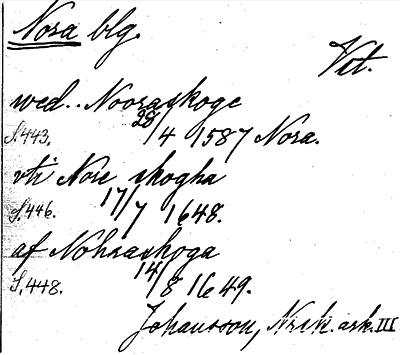 Nora blg.
Vet.
wed.. Nooraskoge
S.443. 28/4 1587 Nora.
vti Nore skogha
S.446. 17/7 1648.
af Nohraskoga
S.448. 14/8 1649.
Johansson, Norah. ark. III